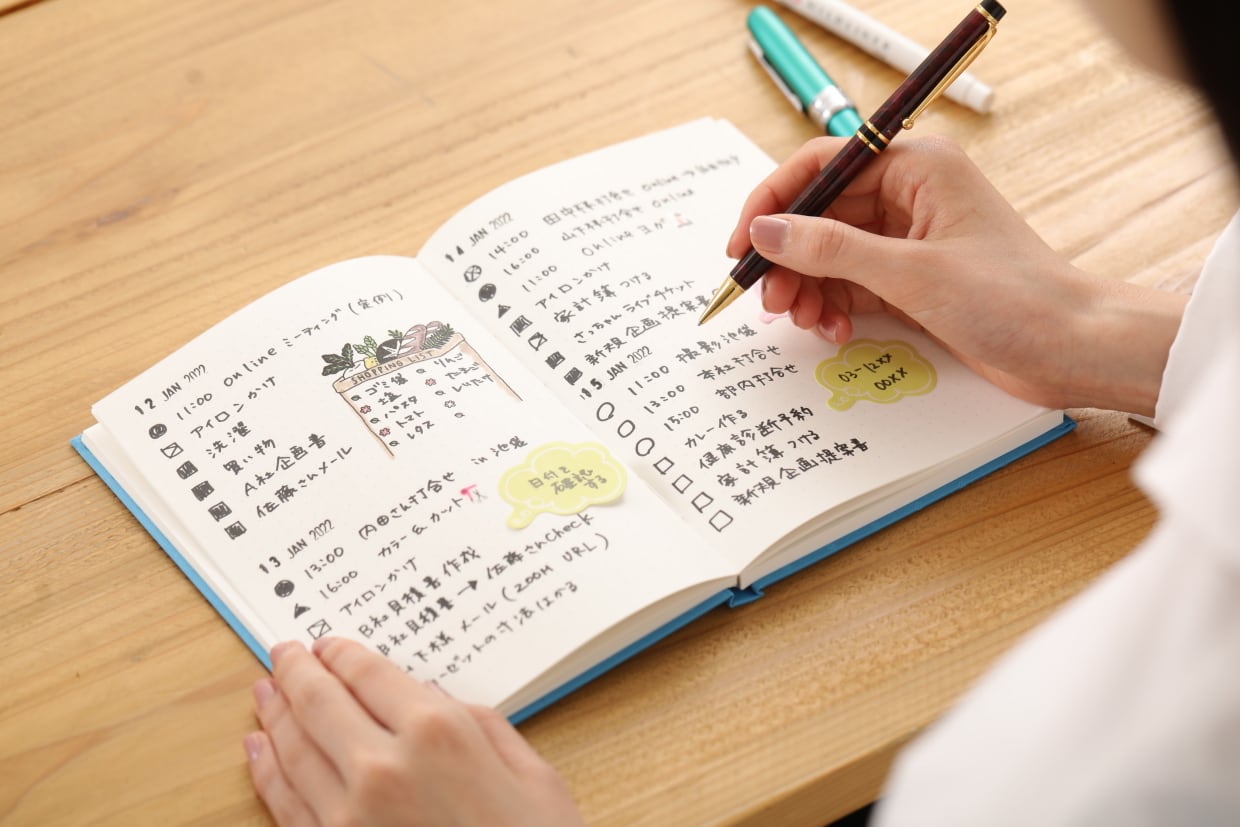 12 JAN 2022
11:00 online ミーティング (定例)
アイロンがけ
洗濯
買い物
A社企画書
佐藤さんメール
SHOPPING LIST
ゴミ袋
塩
パスタ
トマト
レタス
りんご
13 JAN 2022
13:00 内田さん打合せ in 池袋
16:00 カラー & カット
アイロンがけ
B社見積書作成
B社見積書 → 佐藤さんCheck
山下様 メール (ZOOM URL)
ーゼットの寸法はかる
日付を
確認
する
14 JAN 2022
14:00 田中様打合せ online
16:00 山下様打合せ online
11:00 online ヨガ
アイロンがけ
家計簿つける
さっちゃんライブチケット
新規企画提案書
15 JAN 2022
11:00 撮影 池袋
13:00 本社打合せ
15:00 部内打合せ
カレー作る
健康診断予約
家計簿つける
新規企画提案書
03-12XX
00XX